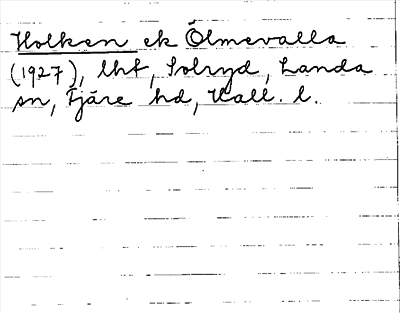 Holken ek Ölmevalla
(1927), lht, Solryd, Landa
sn, Fjäre hd, Hall. l.